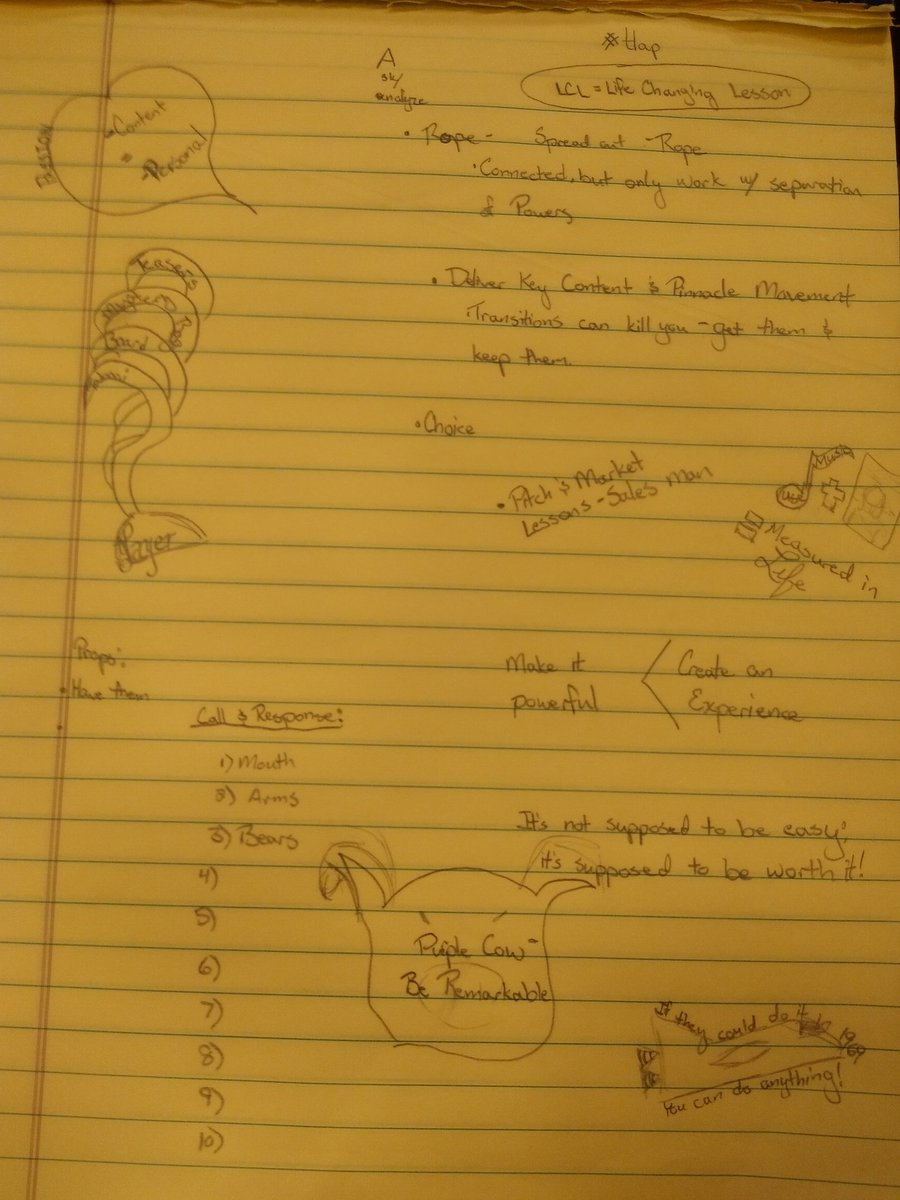 * Hap
A
sk/
analyze
LCL = Life Changing Lesson
PASSION
Content
Personal
• Rope - Spread out - Rope
• Connected, but only work w/ separation
of Powers
Teasers
Mystery Bag
Board
• Deliver Key Content & Pinnacle Movement
• Transitions can kill you - get them &
keep them.
• Choice
• Pitch & Market
Lessons - Sales man
Music
Measured in
Life
Player
Props:
• Have them
Make it
powerful
Create an
Experience
Call & Response:
1) Mouth
2) Arms
3) Bears
4)
5)
6)
7)
8)
9)
10)
It's not supposed to be easy;
it's supposed to be worth it!
Purple Cow -
Be Remarkable
If they could do it in 1969
You can do anything!